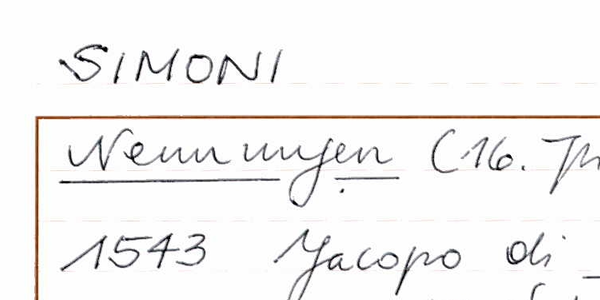 SIMONI
Nennungen (16. Jh
1543 Jacopo di